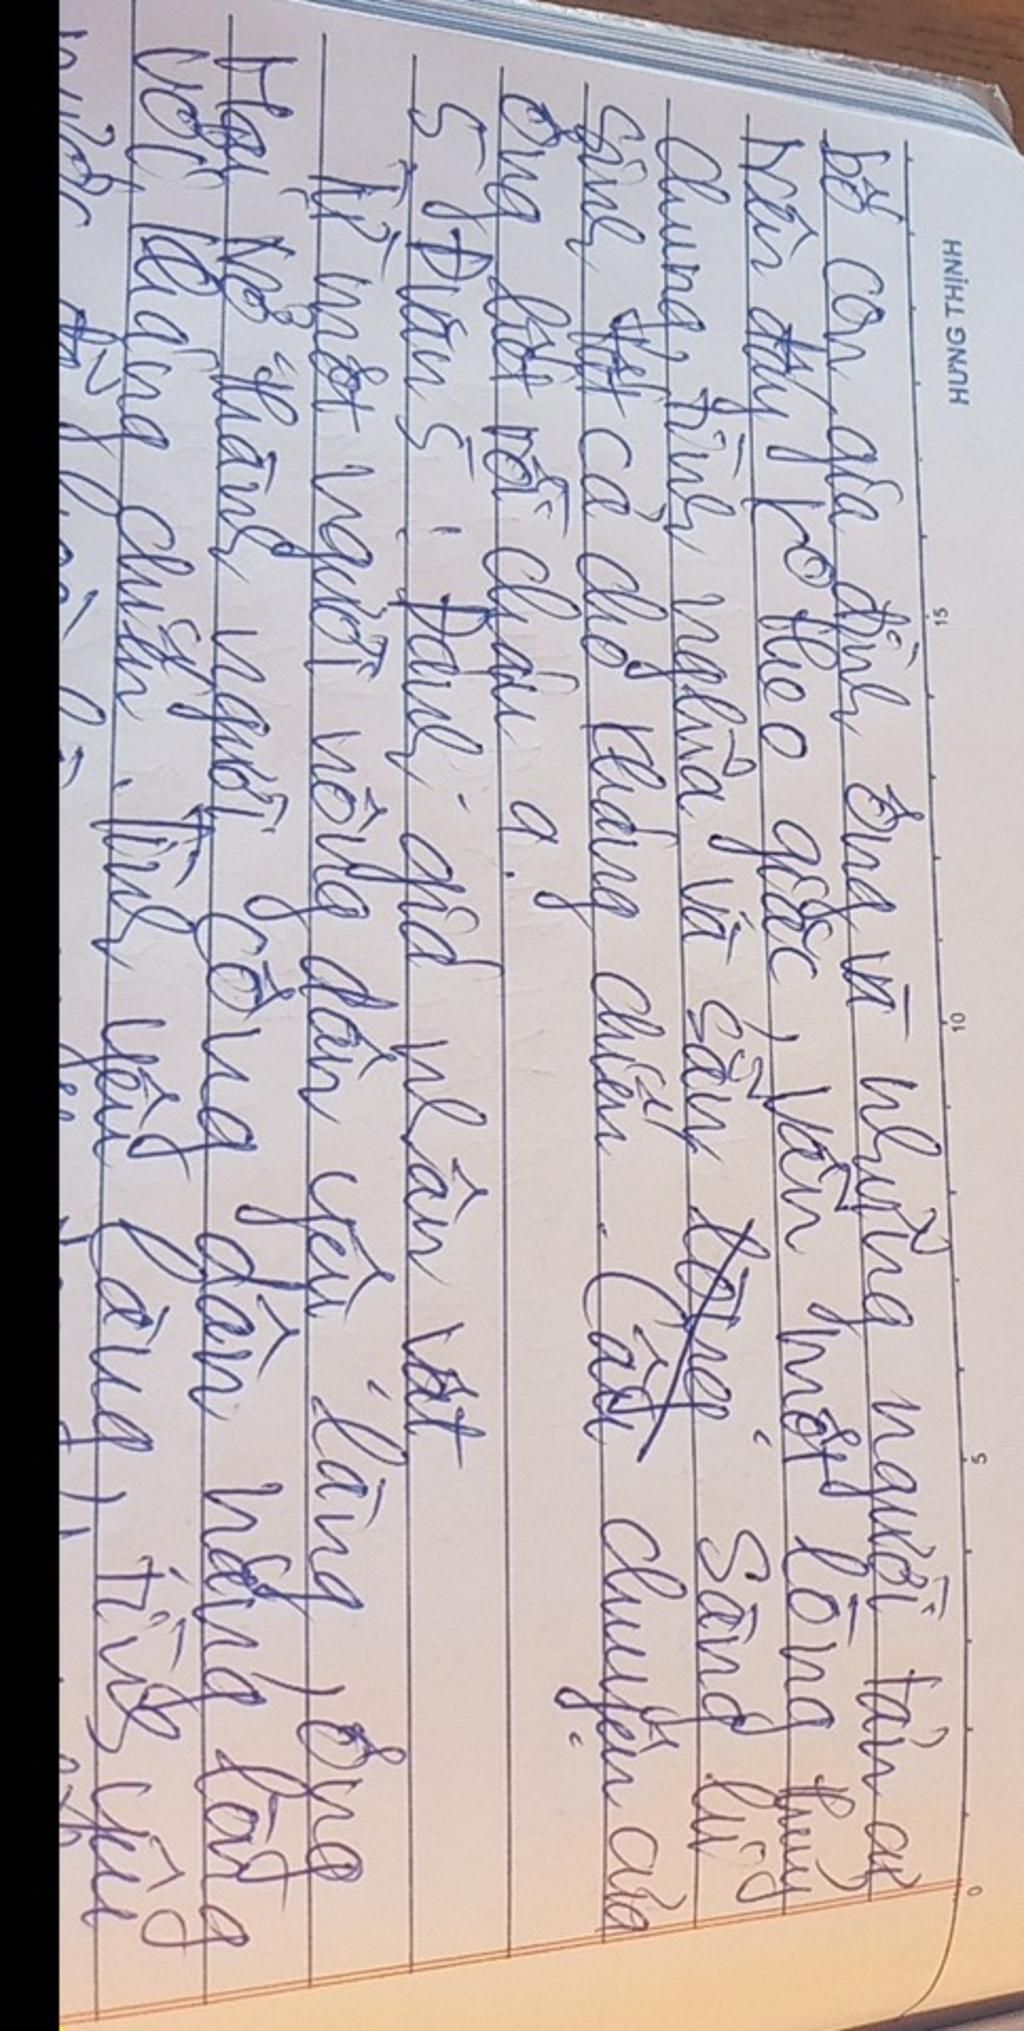 HƯNG THỊNH
15 10 5 0
bố con gia đình ông và những người tản cư
trên đây ko theo giặc, vẫn một lòng thuỷ
chung, tình nghĩa và sẵn sàng hy
sinh tất cả cho kháng chiến. Câu chuyện của
ông lão rồi cháu ạ.
5, Đoạn 5: Đánh giá nhân vật
Từ một người nông dân yêu làng, ông
Hai trở thành người công dân nặng lòng
với kháng chiến. Tình yêu làng, tình yêu
nước